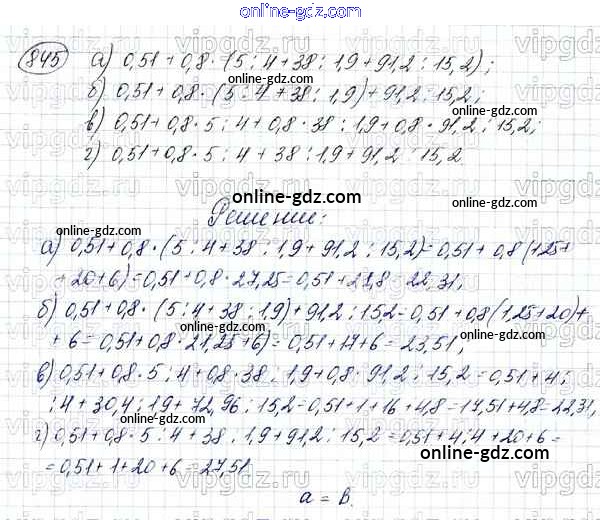 online-gdz.com
845 а) 0,51 + 0,8 · (5 : 4 + 38 : 1,9 + 91,2 : 15,2) ;
б) 0,51 + 0,8 · (5 : 4 + 38 : 1,9) + 91,2 : 15,2 ;
в) 0,51 + 0,8 · 5 : 4 + 0,8 · 38 : 1,9 + 0,8 · 91,2 : 15,2 ;
г) 0,51 + 0,8 · 5 : 4 + 38 : 1,9 + 91,2 : 15,2
online-gdz.com
Решение:
online-gdz.com
а) 0,51 + 0,8 · (5 : 4 + 38 : 1,9 + 91,2 : 15,2) = 0,51 + 0,8 (1,25 +
+ 20 + 6) = 0,51 + 0,8 · 27,25 = 0,51 + 21,8 = 22,31 ;
online-gdz.com
б) 0,51 + 0,8 · (5 : 4 + 38 : 1,9) + 91,2 : 152 = 0,51 + 0,8 (1,25 + 20) +
+ 6 = 0,51 + 0,8 · 21,25 + 6) = 0,51 + 17 + 6 = 23,51 ;
online-gdz.com
в) 0,51 + 0,8 · 5 : 4 + 0,8 · 38 : 1,9 + 0,8 · 91,2 : 15,2 = 0,51 + 4 :
: 4 + 30,4 : 1,9 + 72,96 : 15,2 = 0,51 + 1 + 16 + 4,8 = 17,51 + 4,8 = 22,31,
online-gdz.com
г) 0,51 + 0,8 · 5 : 4 + 38 : 1,9 + 91,2 : 15,2 = 0,51 + 4 : 4 + 20 + 6 =
= 0,51 + 1 + 20 + 6 = 27,51
online-gdz.com
а = в.
online-gdz.com